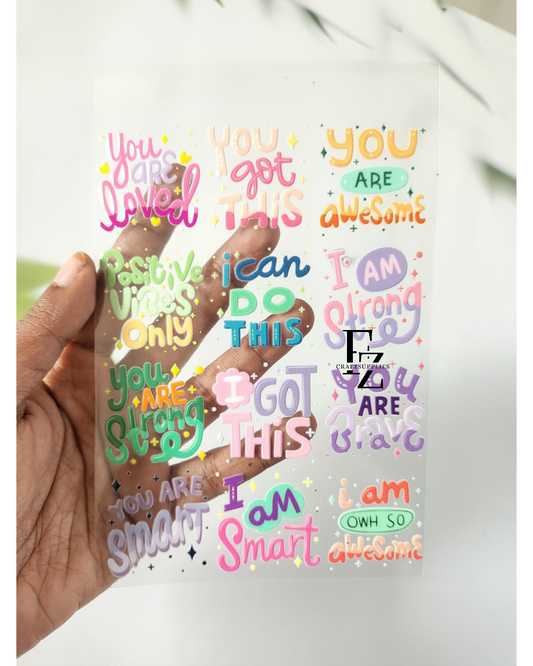 You
ARE
loved
YOU
got
THiS
YOU
ARE
aWeSOmE
PoSiTiVe
ViBES
Only
i can
DO
THIS
I AM
Strong
FZ
CRAFTSUPPLIES
You
ARE
Strong
I GOT
THiS
YOU
ARE
BravE
YOU ARE
Smart
I aM
Smart
i am
OWH SO
aWeSOmE